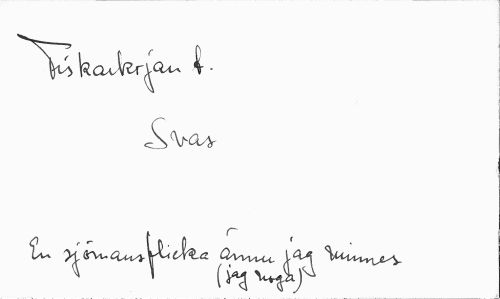 Fiskarkrjan t.
Svas
En sjömansflicka ännu jag minnes
(jag noga)